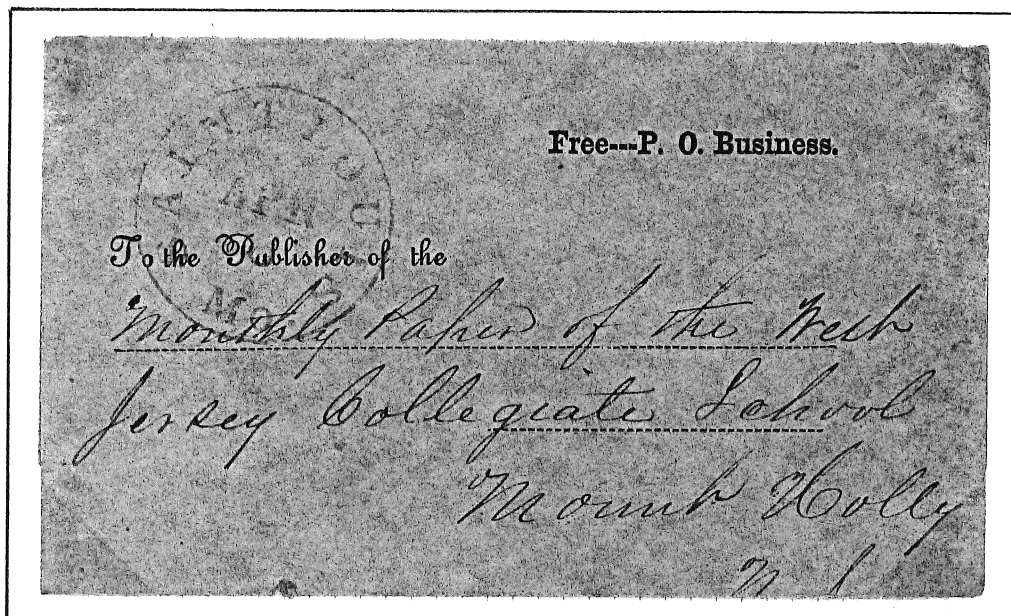 Free---P. O. Business.
To the Publisher of the
Monthly Paper of the West
Jersey Collegiate School
Mount Holly
N. J.